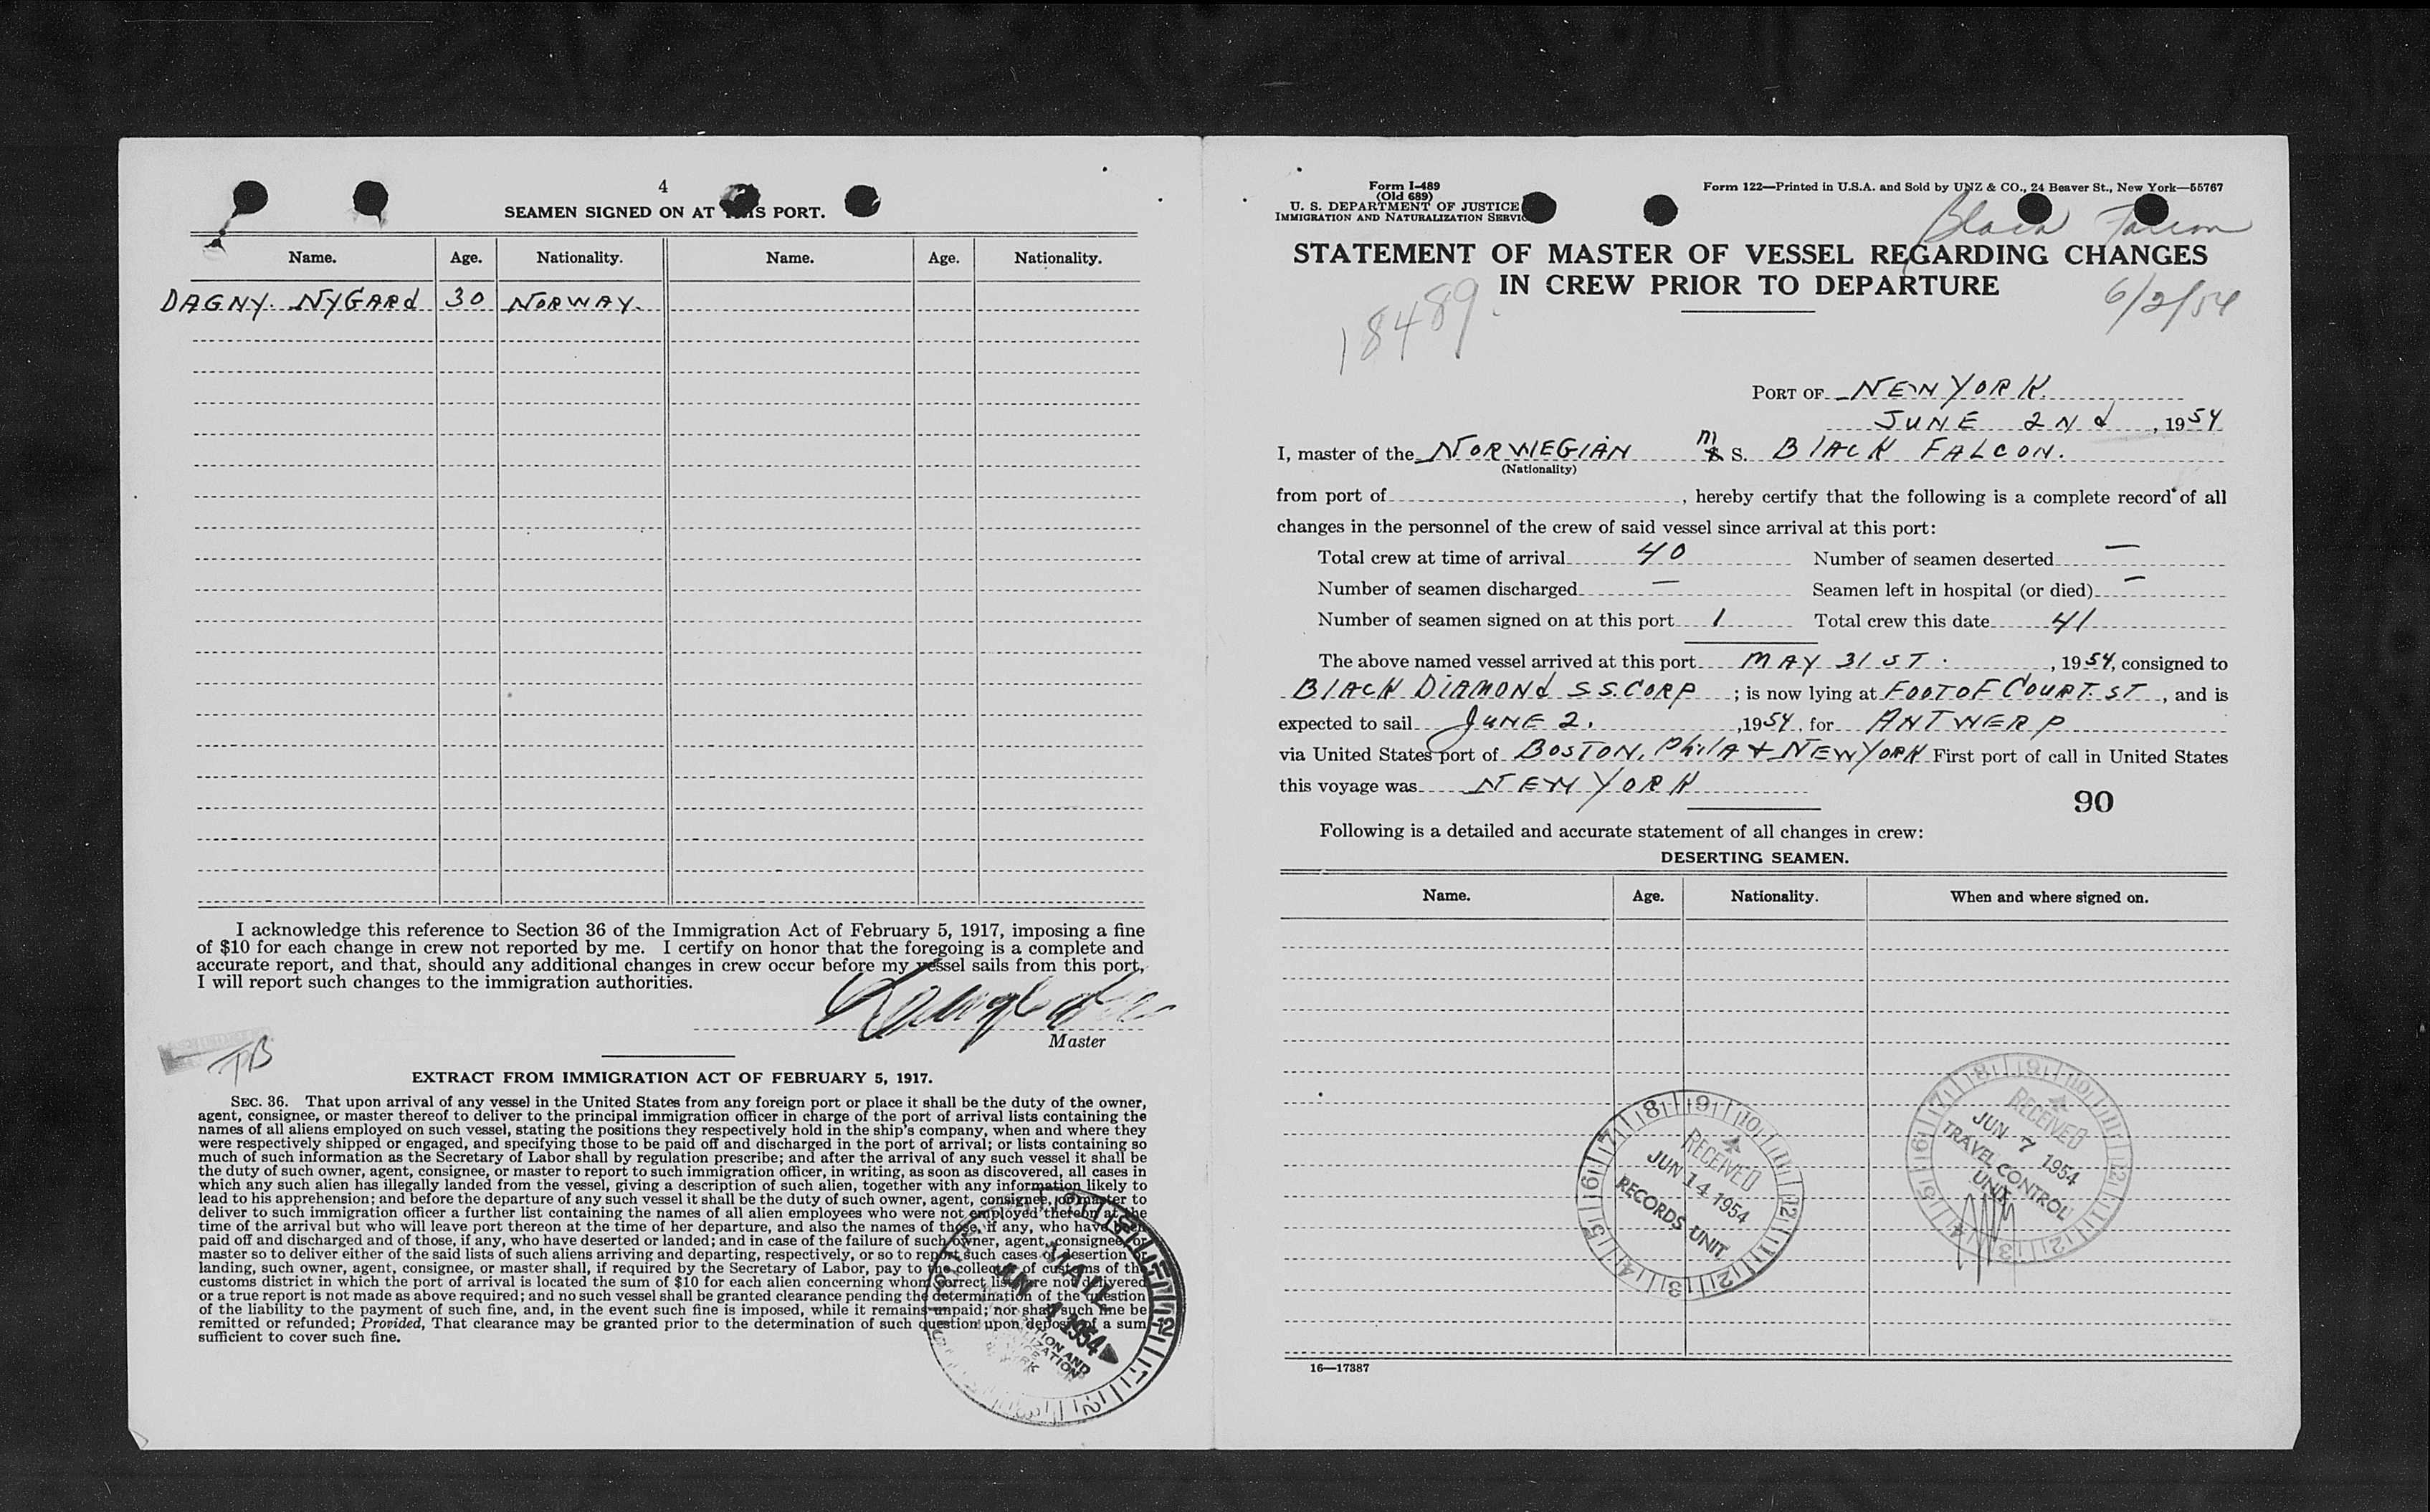 4
SEAMEN SIGNED ON AT THIS PORT.
Name. Age. Nationality. Name. Age. Nationality.
DAGNY. NYGARd 30 NORWAY.
I acknowledge this reference to Section 36 of the Immigration Act of February 5, 1917, imposing a fine
of $10 for each change in crew not reported by me. I certify on honor that the foregoing is a complete and
accurate report, and that, should any additional changes in crew occur before my vessel sails from this port,
I will report such changes to the immigration authorities.
Master
TB
EXTRACT FROM IMMIGRATION ACT OF FEBRUARY 5, 1917.
SEC. 36. That upon arrival of any vessel in the United States from any foreign port or place it shall be the duty of the owner,
agent, consignee, or master thereof to deliver to the principal immigration officer in charge of the port of arrival lists containing the
names of all aliens employed on such vessel, stating the positions they respectively hold in the ship's company, when and where they
were respectively shipped or engaged, and specifying those to be paid off and discharged in the port of arrival; or lists containing so
much of such information as the Secretary of Labor shall by regulation prescribe; and after the arrival of any such vessel it shall be
the duty of such owner, agent, consignee, or master to report to such immigration officer, in writing, as soon as discovered, all cases in
which any such alien has illegally landed from the vessel, giving a description of such alien, together with any information likely to
lead to his apprehension; and before the departure of any such vessel it shall be the duty of such owner, agent, consignee, or master to
deliver to such immigration officer a further list containing the names of all alien employees who were not employed thereon at the
time of the arrival but who will leave port thereon at the time of her departure, and also the names of those, if any, who have been
paid off and discharged and of those, if any, who have deserted or landed; and in case of the failure of such owner, agent, consignee, or
master so to deliver either of the said lists of such aliens arriving and departing, respectively, or so to report such cases of desertion or
landing, such owner, agent, consignee, or master shall, if required by the Secretary of Labor, pay to the collector of customs of the
customs district in which the port of arrival is located the sum of $10 for each alien concerning whom correct lists are not delivered
or a true report is not made as above required; and no such vessel shall be granted clearance pending the determination of the question
of the liability to the payment of such fine, and, in the event such fine is imposed, while it remains unpaid; nor shall such fine be
remitted or refunded; Provided, That clearance may be granted prior to the determination of such question upon deposit of a sum
sufficient to cover such fine.
MAIL
JUN 4 1954
Form I-489
(Old 689)
U. S. DEPARTMENT OF JUSTICE
IMMIGRATION AND NATURALIZATION SERVICE
Form 122—Printed in U.S.A. and Sold by UNZ & CO., 24 Beaver St., New York—55767
Black Falcon
STATEMENT OF MASTER OF VESSEL REGARDING CHANGES
IN CREW PRIOR TO DEPARTURE
6/2/54
18489.
PORT OF NEW YORK.
JUNE 2Nd, 1954
I, master of the NORWEGIAN M S. BlACK FALCON.
(Nationality)
from port of , hereby certify that the following is a complete record of all
changes in the personnel of the crew of said vessel since arrival at this port:
Total crew at time of arrival 40 Number of seamen deserted —
Number of seamen discharged — Seamen left in hospital (or died) —
Number of seamen signed on at this port 1 Total crew this date 41
The above named vessel arrived at this port MAY 31 ST. , 1954, consigned to
BlACK DIAMONd S.S. CORP ; is now lying at FOOT OF COURT. ST , and is
expected to sail JUNE 2. , 1954, for ANTWERP
via United States port of BOSTON, PhilA + NEW YORK First port of call in United States
this voyage was NEW YORK
90
Following is a detailed and accurate statement of all changes in crew:
DESERTING SEAMEN.
Name. Age. Nationality. When and where signed on.
RECEIVED
JUN 7 1954
TRAVEL CONTROL
UNIT
RECEIVED
JUN 14 1954
RECORDS UNIT
16—17387